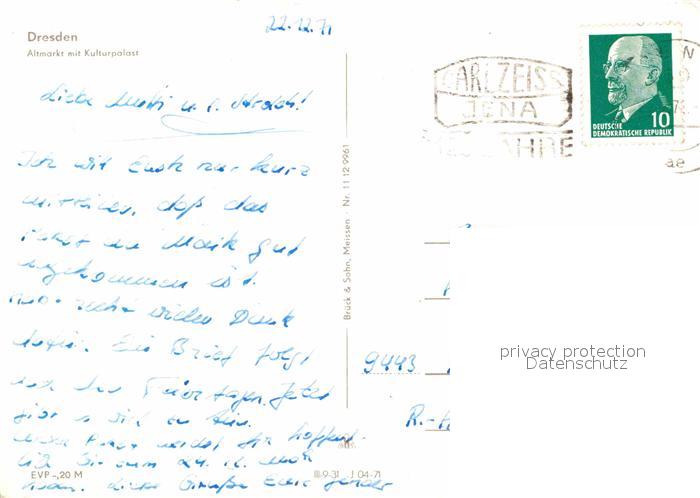 22.12.71
Dresden
Altmarkt mit Kulturpalast
Liebe Mutti u.
Ich will Euch nur kurz
mitteilen, daß das
Paket von Maik gut
angekommen ist.
recht vielen Dank
dafür. Ein Brief folgt
nach den Feiertagen. Jetzt
gibt es viel zu tun.
Unser Paket werdet Ihr hoffent-
lich bis zum 24. 12.
haben. Liebe Grüße Eure
EVP -,20 M
III-9-31 J 04-71
Brück & Sohn, Meissen · Nr. 11 12 9961
CARL ZEISS
JENA
JAHRE
DEUTSCHE
DEMOKRATISCHE REPUBLIK
10
9443
privacy protection
Datenschutz